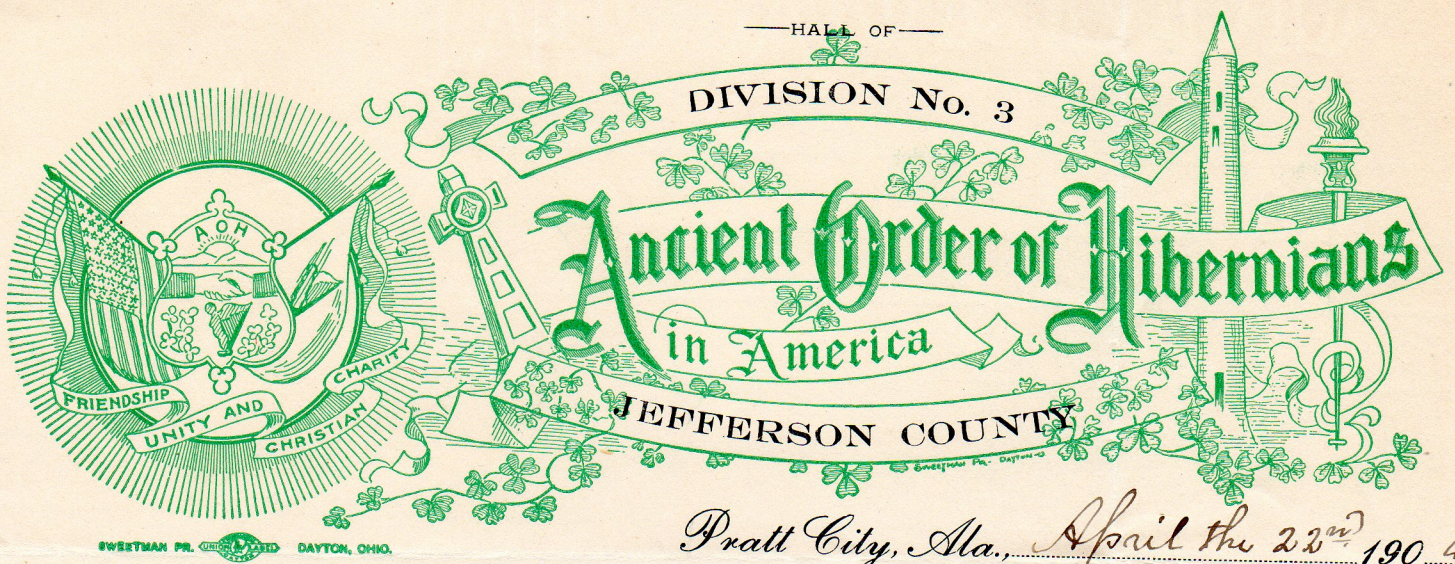 HALL OF
DIVISION No. 3
Ancient Order of Hibernians
in America
JEFFERSON COUNTY
SWEETMAN PR. DAYTON O
AOH
FRIENDSHIP
UNITY AND
CHRISTIAN
CHARITY
SWEETMAN PR. UNION LABEL DAYTON, OHIO.
Pratt City, Ala., April the 22nd 190